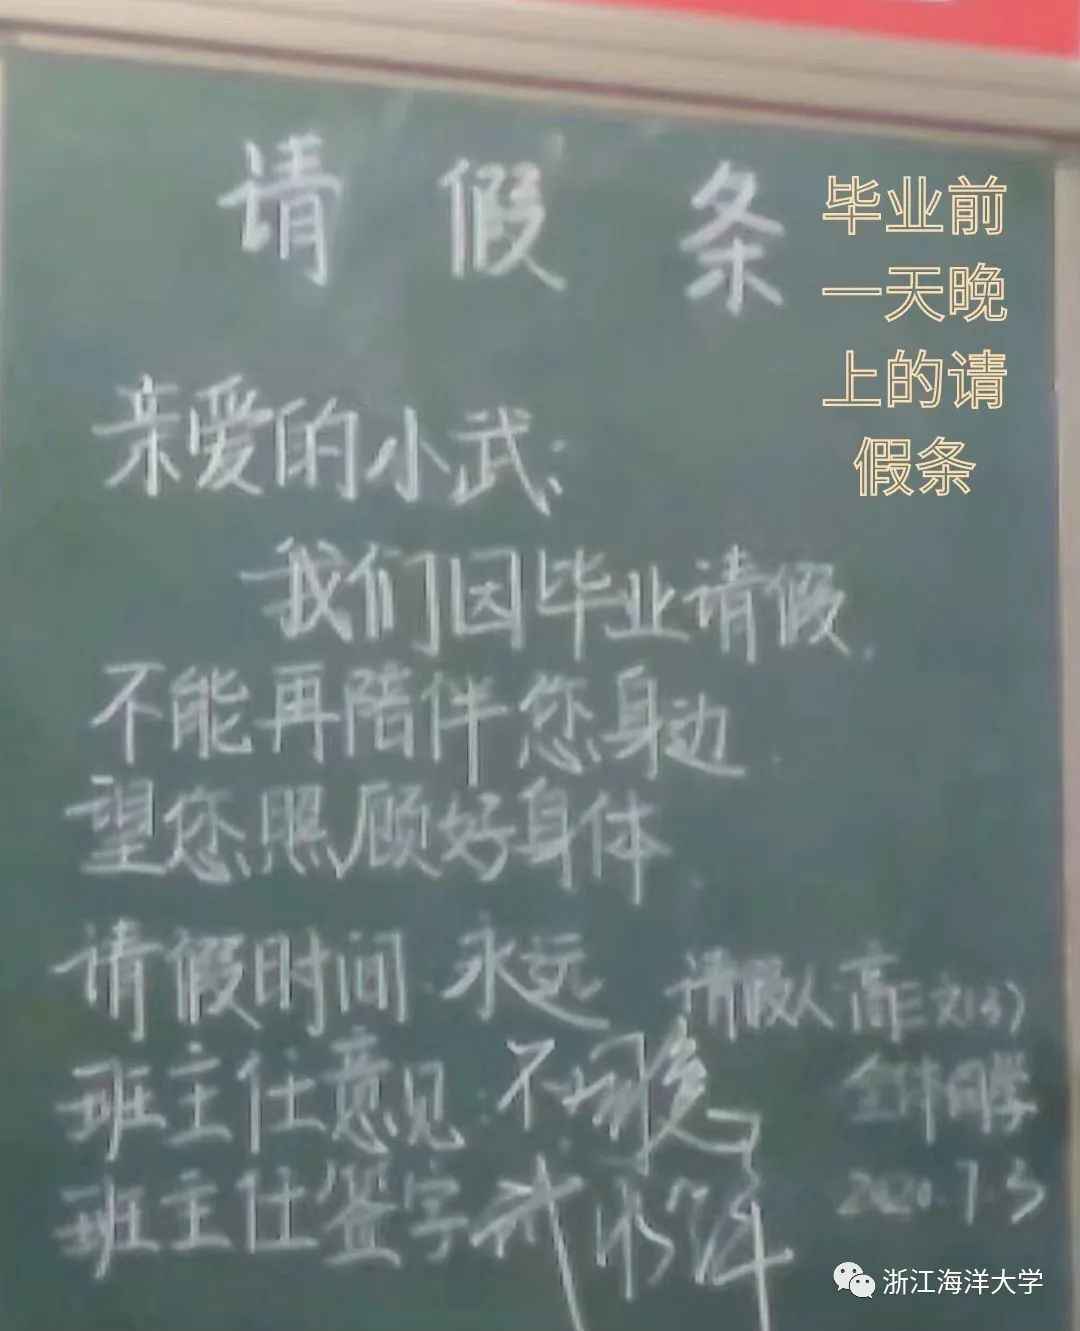 请假条
毕业前
一天晚
上的请
假条
亲爱的小武:
我们因毕业请假.
不能再陪伴您身边.
望您照顾好身体.
请假时间 永远
请假人 高三文(3)
全体同学
2020.7.3
班主任意见:不
班主任签字
浙江海洋大学